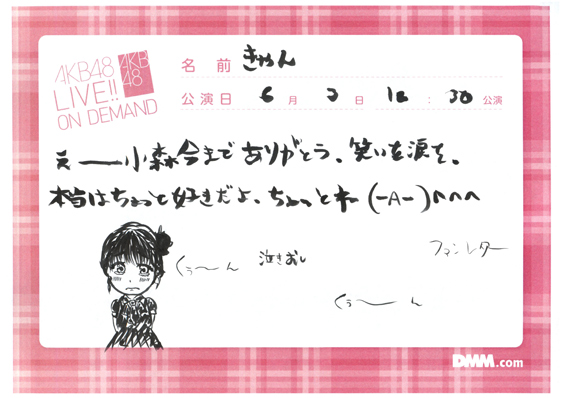 AKB48
LIVE!!
ON DEMAND
AKB
48
名前 きゃん
公演日 6月2日 18:30公演
えー小森今までありがとう、笑いを涙を。
本当はちょっと好きだよ、ちょっとネ (-A-)^^^
くぅ〜ん 泣きおし
ファンレター
くぅ〜ん
DMM.com